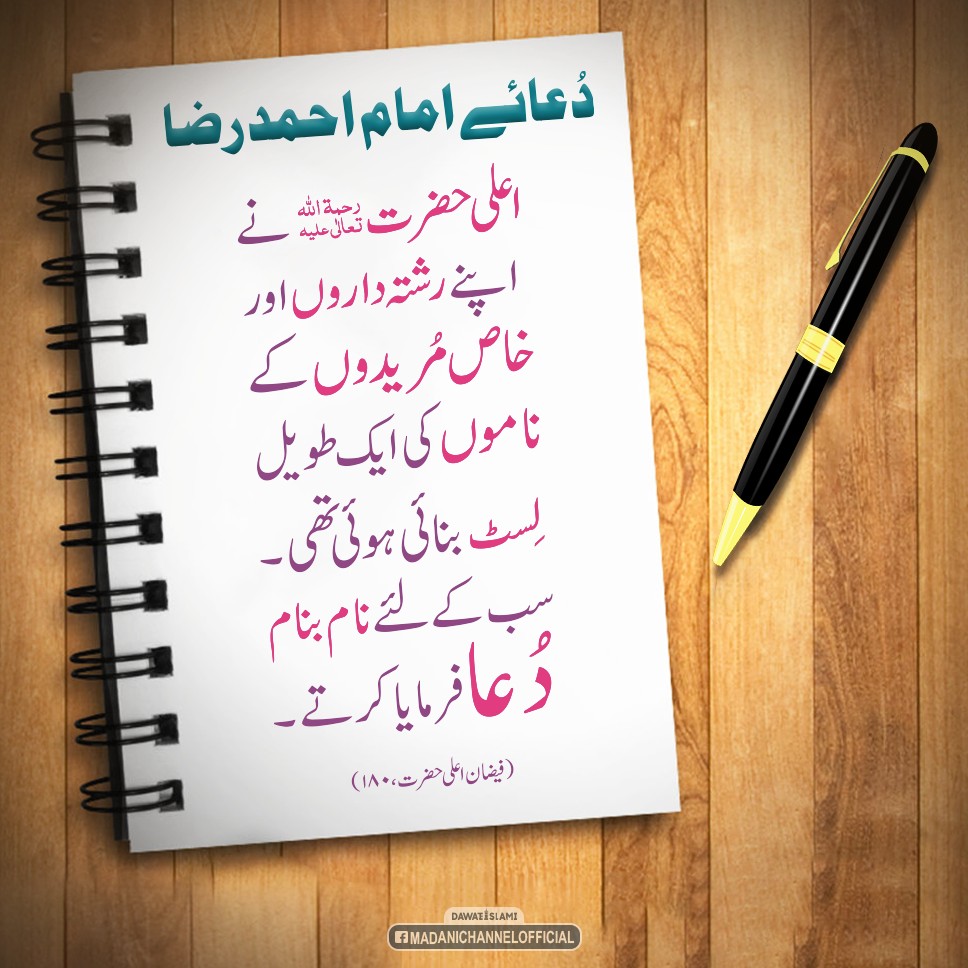 دُعائے امام احمد رضا
اعلیٰ حضرت رحمة الله تعالیٰ علیه نے
اپنے رشتہ داروں اور
خاص مُریدوں کے
ناموں کی ایک طویل
لِسٹ بنائی ہوئی تھی۔
سب کے لئے نام بنام
دُعا فرمایا کرتے۔
(فیضان اعلیٰ حضرت، ۱۸۰)
DAWATEISLAMI
f MADANICHANNELOFFICIAL